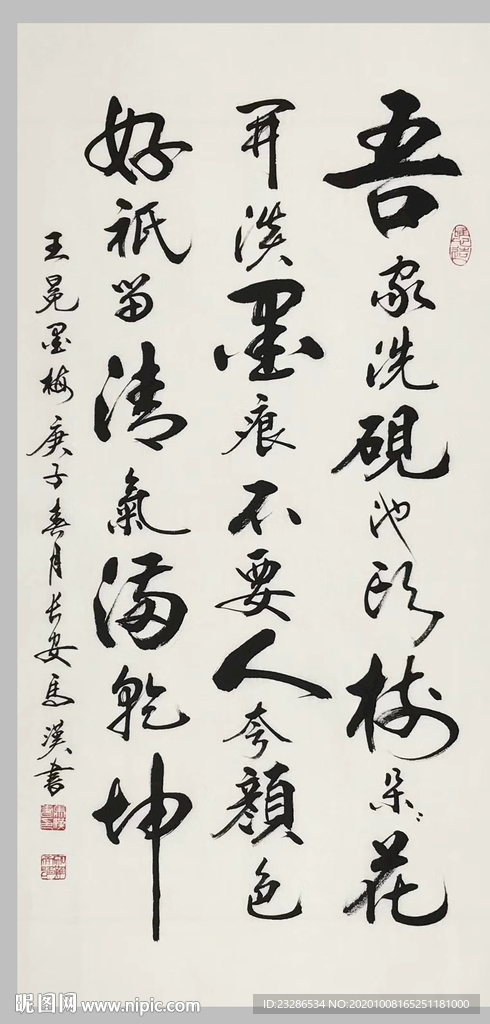 吾家洗硯池頭樹朵々花
开淡墨痕不要人夸顏色
好祇留清氣滿乾坤
王冕墨梅庚子春月長安馬漢書
昵图网 www.nipic.com
ID:23286534 NO:20201008165251181000